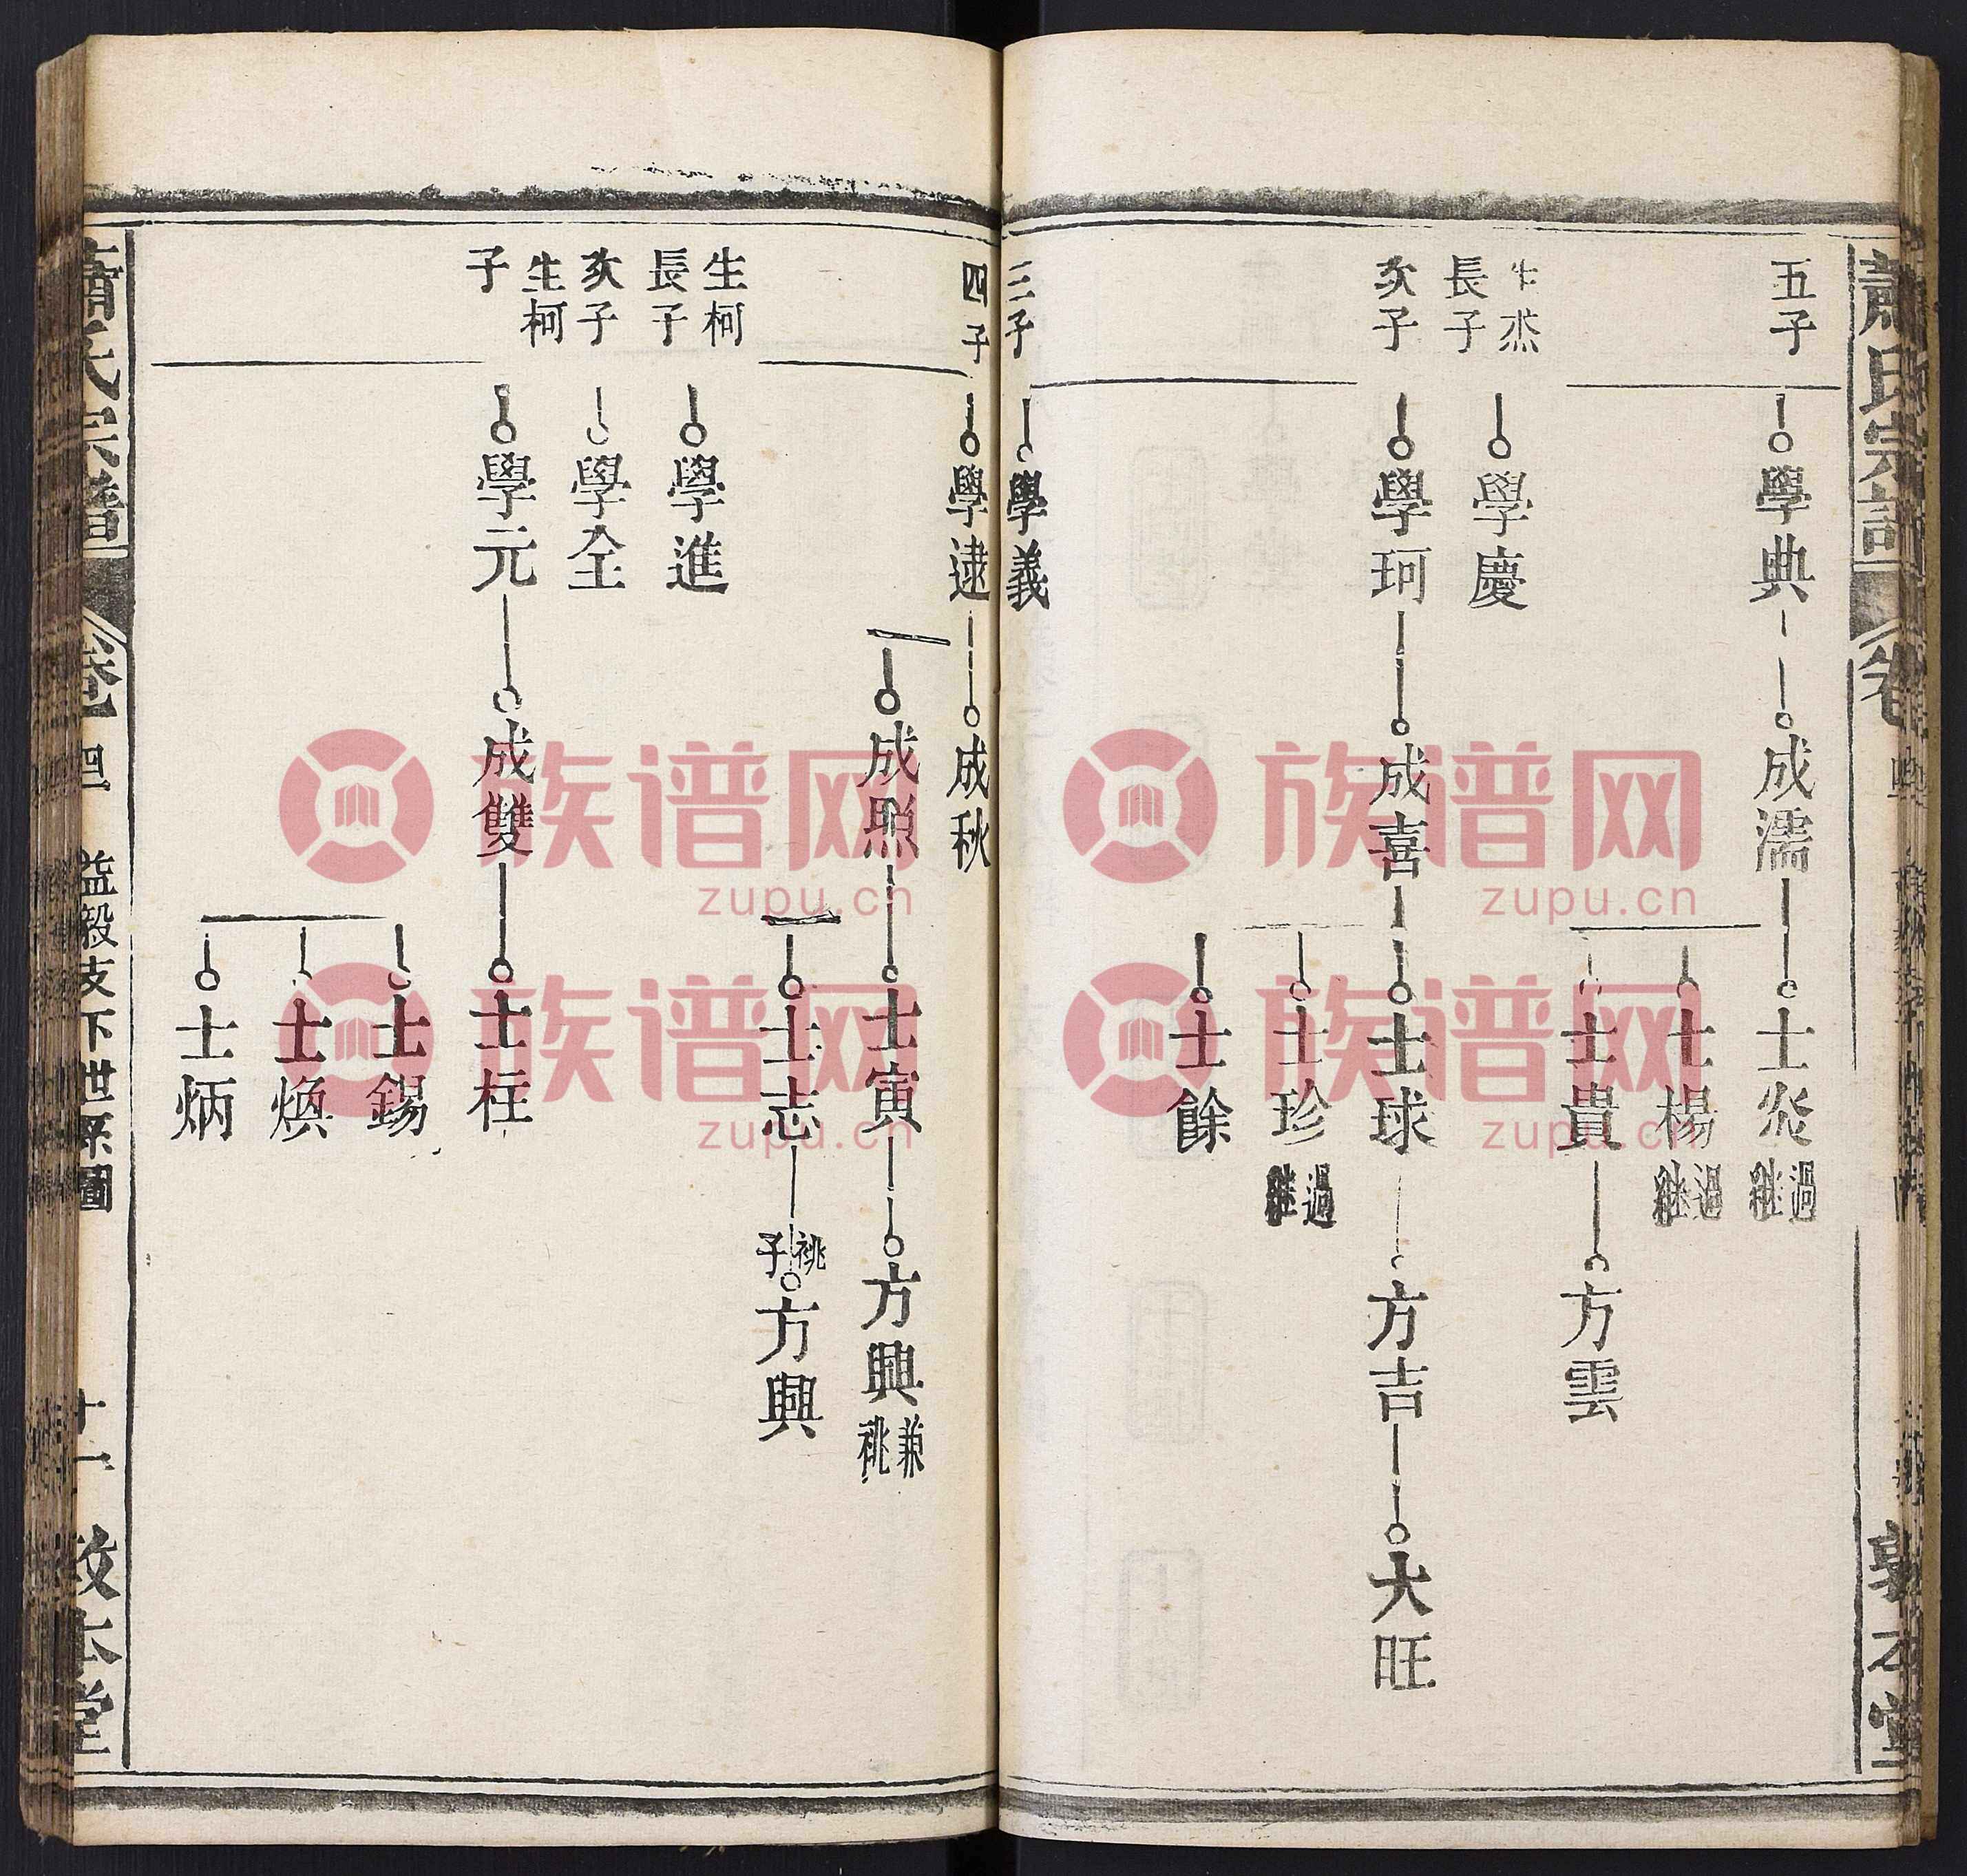 五子
學典
成濡
士炎
過
継
士楊
過
継
士貴
方雲
長子
學慶
次子
學珂
成喜
士球
方吉
大旺
士珍
過
継
士餘
三子
學義
四子
學逮
成秋
成照
士寅
方興
兼
祧
士志
祧
子
方興
生柯
長子
學進
次子
學全
生柯
子
學元
成雙
士柱
士錫
士煥
士炳
蕭氏宗譜
卷四
益毅支下世系圖
十一
敦本堂
族谱网
zupu.cn
族谱网
zupu.cn
族谱网
zupu.cn
族谱网
zupu.cn